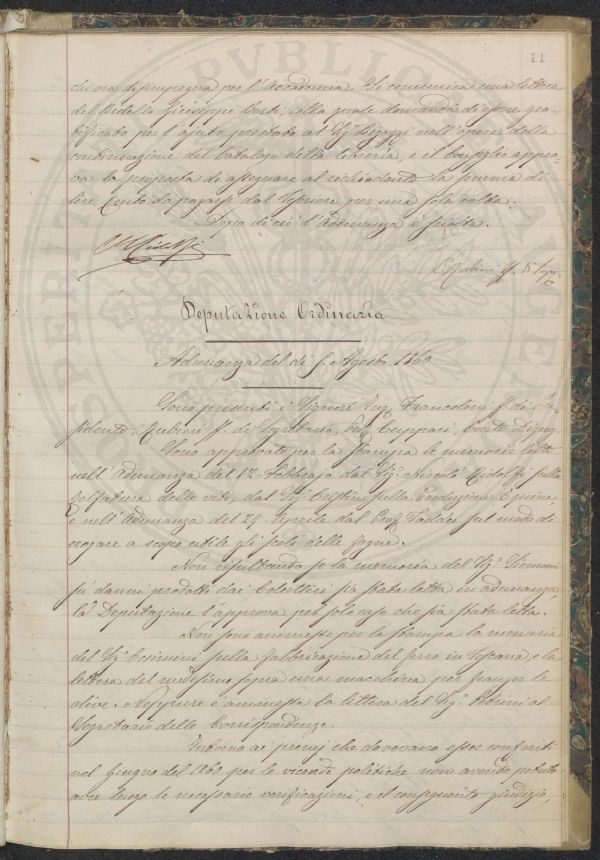 11
che ora disimpegna per l'Accademia. Si comunica una lettera
del Bidello Giuseppe Conti, colla quale domanda di essere gra-
tificato per l'ajuto prestato al Sig. nell'opera della
continuazione del Catalogo della Libreria, e il Consiglio appro-
va la proposta di assegnare al richiedente la somma di
lire Cento da pagarsi dal Tesoriere per una sola volta.
Dopo di ciò l'Adunanza è sciolta.
C. Ridolfi
L. Rubini ff. di Segr.
Deputazione Ordinaria
Adunanza del dì 5. Agosto 1860
Sono presenti i Signori Ing. Francolini ff. di Pre-
sidente, Rubini ff. di Segretario, Cuppari, Conte Digny
Sono approvate per la stampa le memorie lette
nell'Adunanza del 12 Febbrajo dal Sig. Niccolò Ridolfi sulla
solforatura delle viti, dal Sig. sulla Produzione Equina,
e nell'Adunanza del 29 Aprile dal Prof. Taddei sul modo di
a scopo utile gli scoli delle fogne.
Non risultando se la memoria del Sig.
su' danni prodotti dai Coleotteri sia stata letta in adunanza,
la Deputazione l'approva pel solo caso che sia stata letta.
Non sono ammesse per la stampa la memoria
del Sig. sulla fabbricazione del ferro in Toscana, e la
lettera del medesimo sopra una macchina per franger le
olive. Neppure è ammessa la lettera del Sig. al
Segretario delle Corrispondenze.
Intorno ai premj che dovevano esser conferiti
nel Giugno del 1860 per le vicende politiche non avendo potuto
aver luogo le necessarie verificazioni, e il conseguente giudizio,